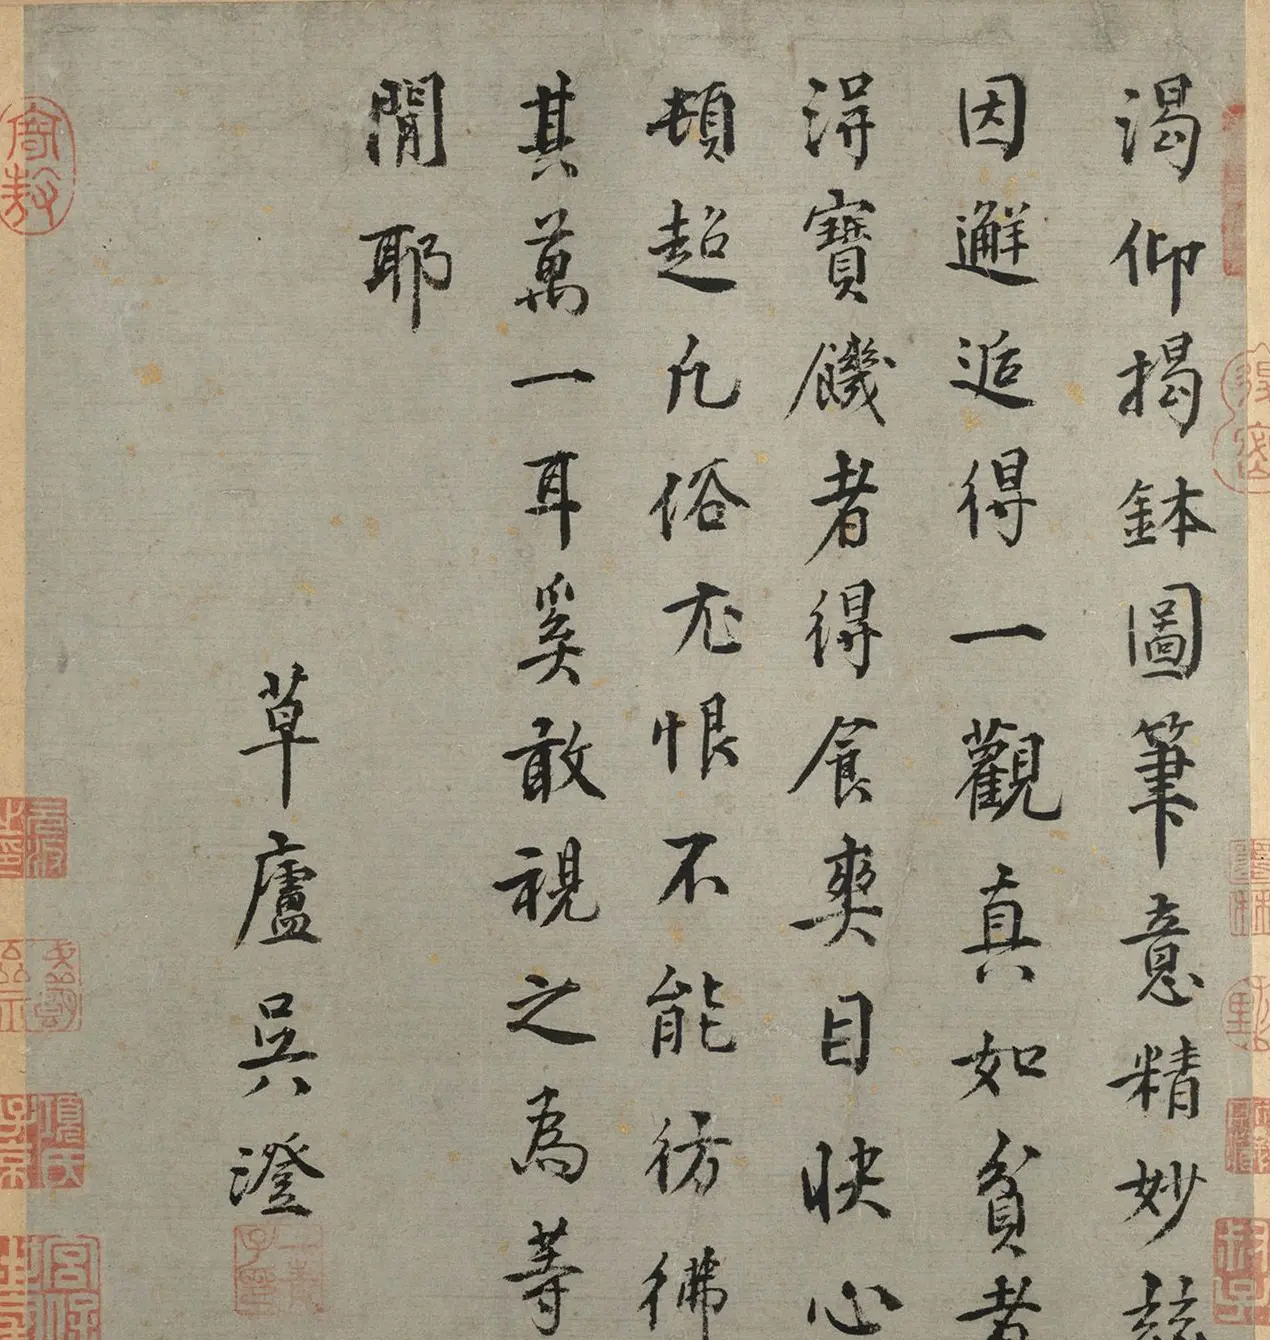 渴仰揭鉢圖筆意精妙茲
因邂逅得一觀真如貧者
得寶饑者得食爽目快心
頓超凡俗尤恨不能彷彿
其萬一耳奚敢視之為等
閒耶
草廬吳澄